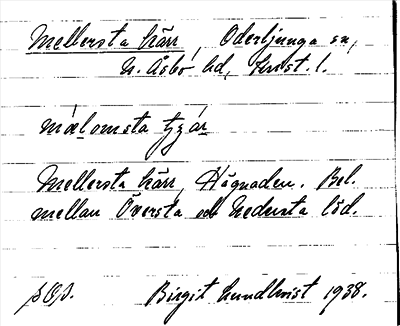 Mellersta kärr, Oderljunga sn,
N. Åsbo hd, Krist. l.
mælomsta tjær
Mellersta kärr, Högnaden. Bel.
mellan Översta och Nedersta löd.
Birgit Lundkvist 1938.